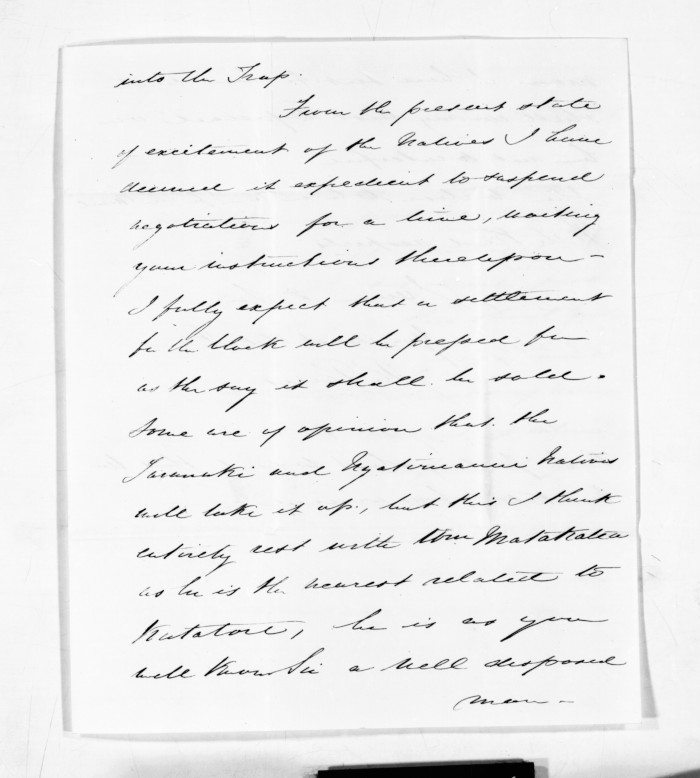 into the Trap.
From the present state
of excitement of the Natives I have
deemed it expedient to suspend
negotiations for a time, waiting
your instructions thereupon –
I fully expect that a settlement
for the block will be pressed for
as they say it shall be sold.
Some are of opinion that the
Taranaki and Ngatiruanui Natives
will take it up, but this I think
entirely rest with Wm Matakatea
as he is the nearest related to
Katatore, he is as you
well know Sir a well disposed
man –